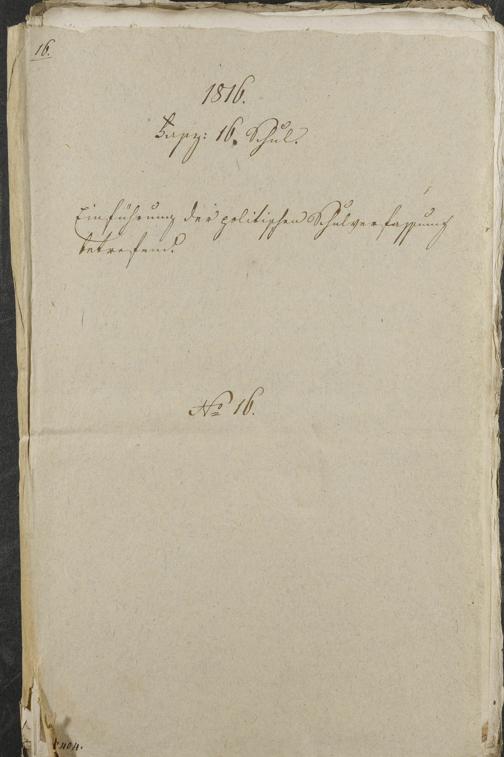 16.
1816.
16. Schul.
Einführung der politischen Schulverfassung
betreffend.
No 16.